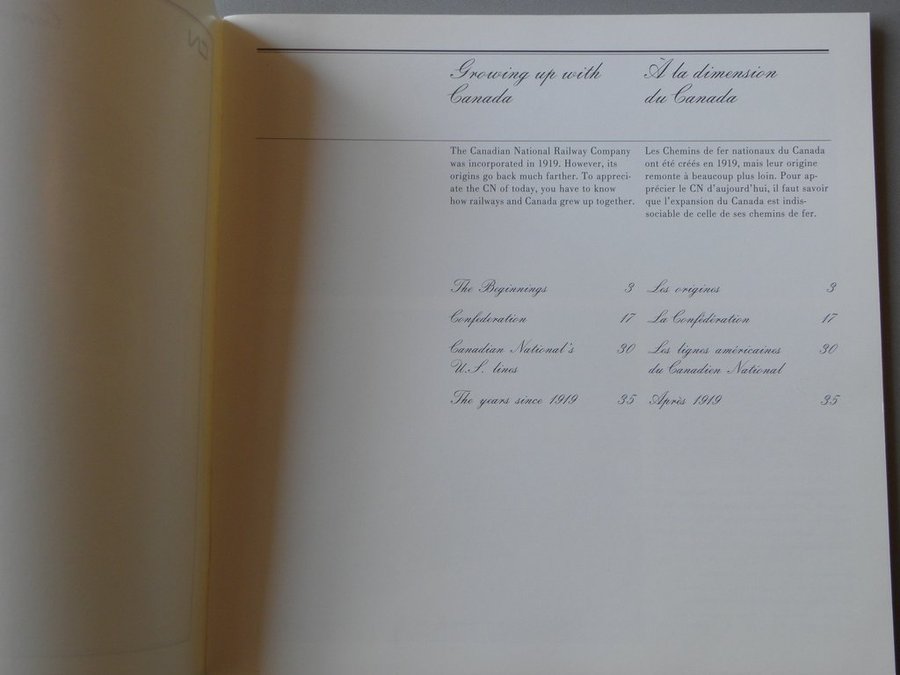 Growing up with
Canada
À la dimension
du Canada
The Canadian National Railway Company
was incorporated in 1919. However, its
origins go back much farther. To appreci-
ate the CN of today, you have to know
how railways and Canada grew up together.
Les Chemins de fer nationaux du Canada
ont été créés en 1919, mais leur origine
remonte à beaucoup plus loin. Pour ap-
précier le CN d'aujourd'hui, il faut savoir
que l'expansion du Canada est indis-
sociable de celle de ses chemins de fer.
The Beginnings 3
Confederation 17
Canadian National's 30
U.S. lines
The years since 1919 35
Les origines 3
La Confédération 17
Les lignes américaines 30
du Canadien National
Après 1919 35